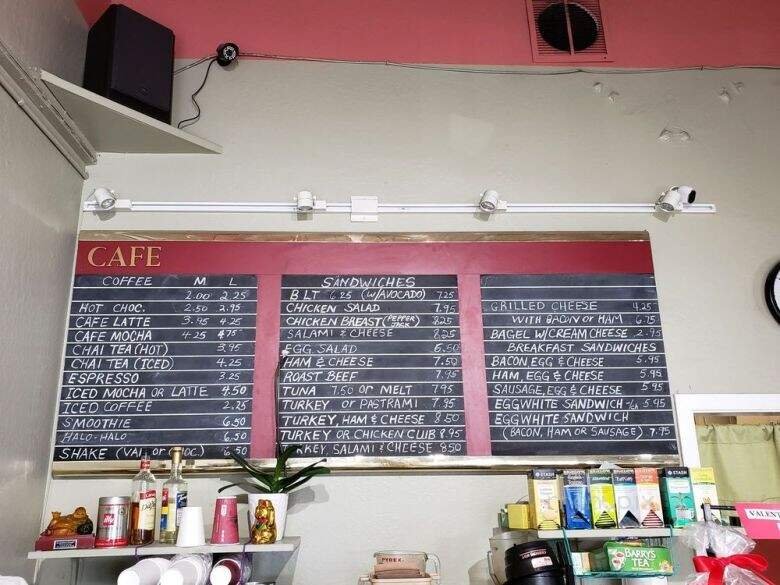 CAFE
COFFEE M L
2.00 2.25
HOT CHOC. 2.50 2.95
CAFE LATTE 3.95 4.25
CAFE MOCHA 4.25 4.75
CHAI TEA (HOT) 3.95
CHAI TEA (ICED) 4.25
ESPRESSO 3.25
ICED MOCHA OR LATTE 4.50
ICED COFFEE 2.25
SMOOTHIE 6.50
HALO-HALO 6.50
SHAKE (VAN. OR CHOC.) 6.50
SANDWICHES
BLT 6.25 (W/AVOCADO) 7.25
CHICKEN SALAD 7.95
CHICKEN BREAST (PEPPER JACK) 8.25
SALAMI & CHEESE 8.25
EGG SALAD 6.50
HAM & CHEESE 7.50
ROAST BEEF 7.95
TUNA 7.50 OR MELT 7.95
TURKEY OR PASTRAMI 7.95
TURKEY, HAM & CHEESE 8.50
TURKEY OR CHICKEN CLUB 8.95
KEY, SALAMI & CHEESE 8.50
GRILLED CHEESE 4.25
WITH BACON OR HAM 6.75
BAGEL W/CREAM CHEESE 2.95
BREAKFAST SANDWICHES
BACON EGG & CHEESE 5.95
HAM, EGG & CHEESE 5.95
SAUSAGE, EGG & CHEESE 5.95
EGGWHITE SANDWICH 5.95
EGGWHITE SANDWICH
(BACON, HAM OR SAUSAGE) 7.95
illy
STASH
STASH
PYREX
BARRY'S
TEA
VALENT